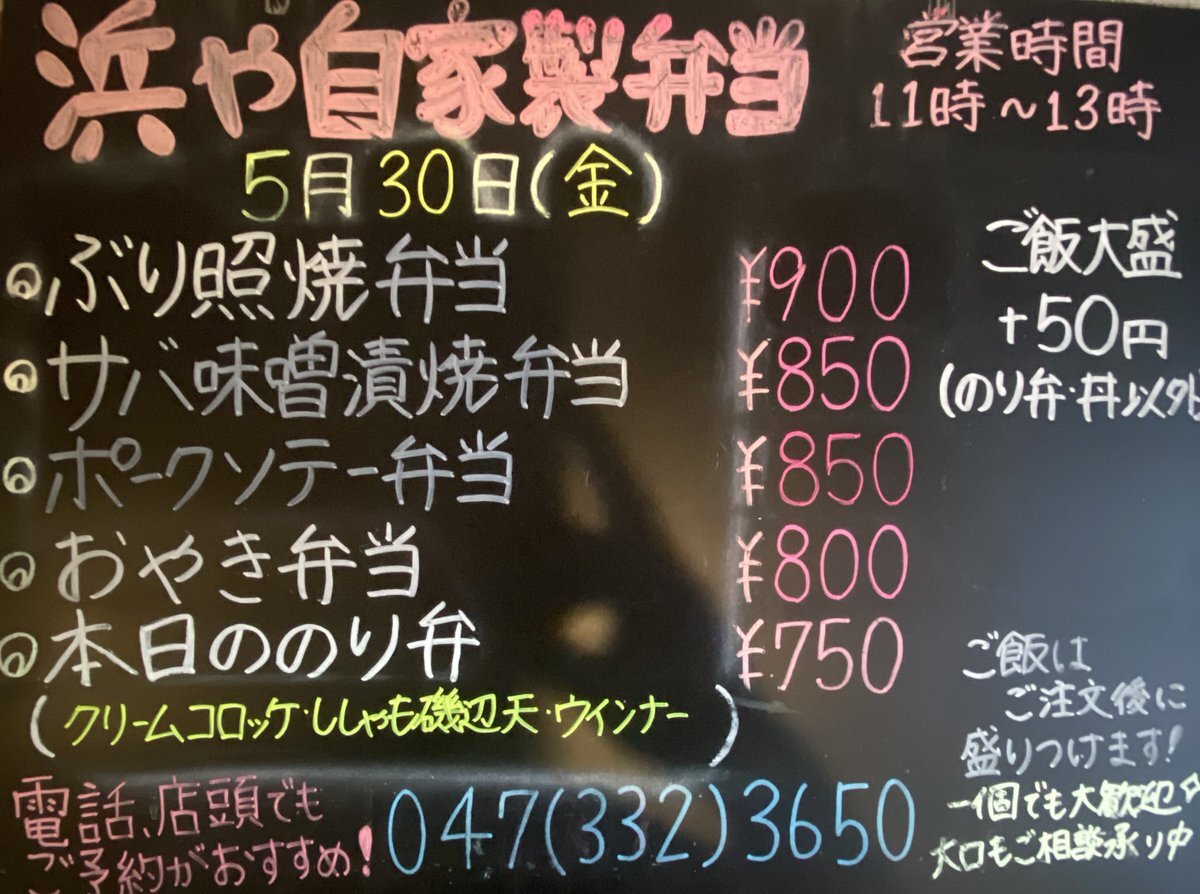 浜や自家製弁当
営業時間
11時～13時
5月30日(金)
ぶり照焼弁当 ¥900
サバ味噌漬焼弁当 ¥850
ポークソテー弁当 ¥850
おやき弁当 ¥800
本日ののり弁 ¥750
(クリームコロッケ・ししゃも磯辺天・ウインナー)
ご飯大盛
+50円
(のり弁・丼以外
ご飯は
ご注文後に
盛りつけます!
一個でも大歓迎
大口もご相談承り中
電話、店頭でも
ご予約がおすすめ!
047(332)3650